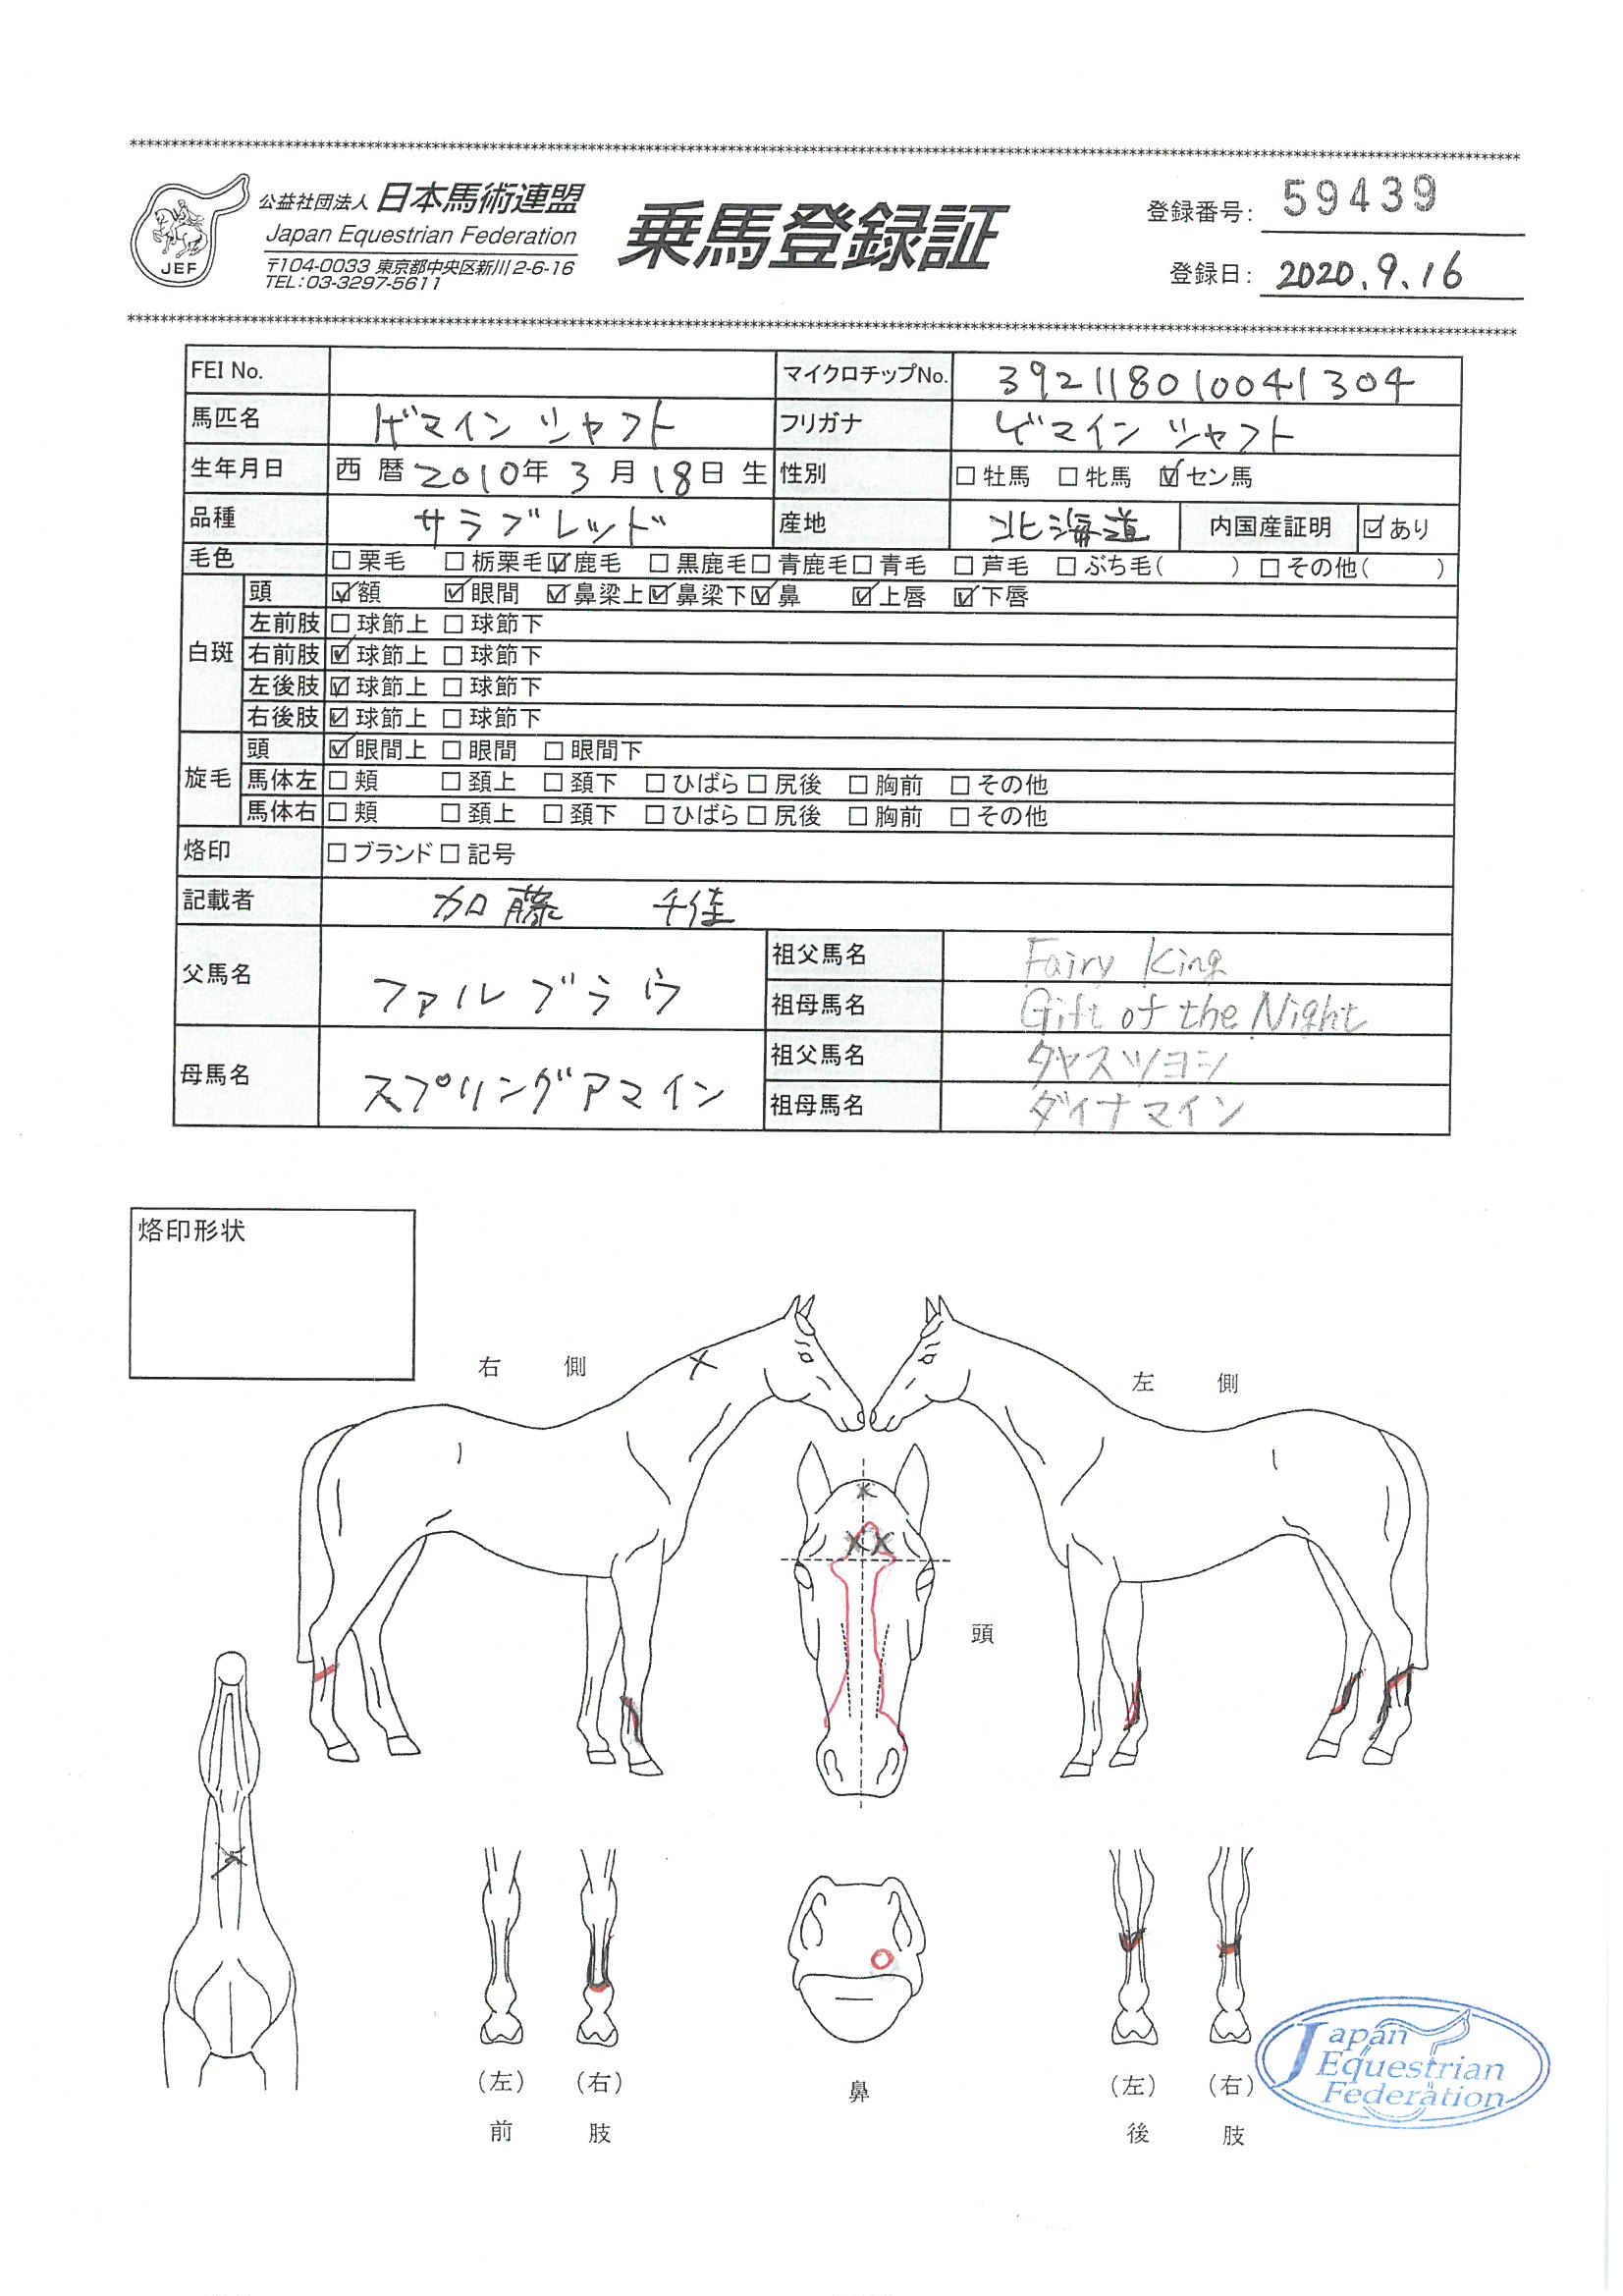 公益社団法人 日本馬術連盟
Japan Equestrian Federation
〒104-0033 東京都中央区新川2-6-16
TEL:03-3297-5611
JEF
乗馬登録証
登録番号: 59439
登録日: 2020.9.16
FEI No. マイクロチップNo. 392118010041304
馬匹名 ゲマインシャフト フリガナ ゲマインシャフト
生年月日 西暦2010年3月18日生 性別 □牡馬 □牝馬 ☑セン馬
品種 サラブレッド 産地 北海道 内国産証明 ☑あり
毛色 □栗毛 □栃栗毛 ☑鹿毛 □黒鹿毛 □青鹿毛 □青毛 □芦毛 □ぶち毛( ) □その他( )
白斑 頭 ☑額 ☑眼間 ☑鼻梁上 ☑鼻梁下 ☑鼻 ☑上唇 ☑下唇
左前肢 □球節上 □球節下
右前肢 ☑球節上 □球節下
左後肢 ☑球節上 □球節下
右後肢 ☑球節上 □球節下
旋毛 頭 ☑眼間上 □眼間 □眼間下
馬体左 □頬 □頚上 □頚下 □ひばら □尻後 □胸前 □その他
馬体右 □頬 □頚上 □頚下 □ひばら □尻後 □胸前 □その他
烙印 □ブランド □記号
記載者 加藤 千佳
父馬名 ファルブラウ 祖父馬名 Fairy King
祖母馬名 Gift of the Night
母馬名 スプリングアマイン 祖父馬名 タヤスツヨシ
祖母馬名 ダイナマイン
烙印形状
右側
左側
頭
(左) (右)
前肢
鼻
(左) (右)
後肢
Japan
Equestrian
Federation